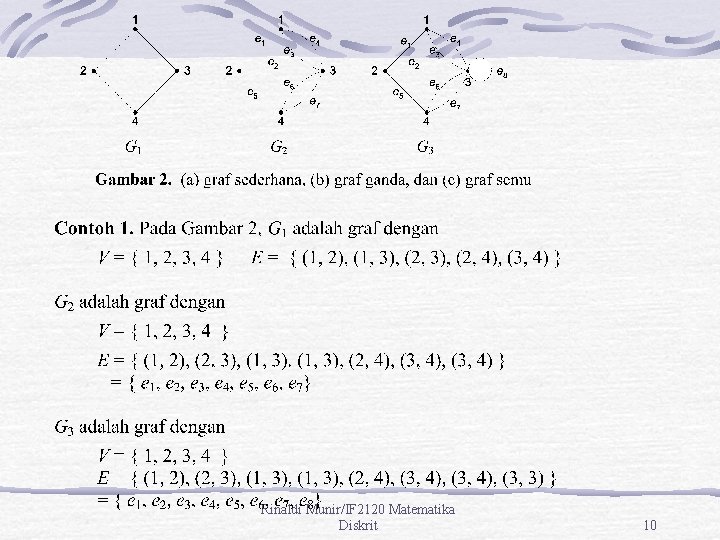 1 1 1
e1 e4 e1 e4
e3 e3
e2 e2
2 3 2 3 2 3 e8
e5 e6 e5 e6
e7 e7
4 4 4
G1 G2 G3
Gambar 2. (a) graf sederhana, (b) graf ganda, dan (c) graf semu
Contoh 1. Pada Gambar 2, G1 adalah graf dengan
V = { 1, 2, 3, 4 } E = { (1, 2), (1, 3), (2, 3), (2, 4), (3, 4) }
G2 adalah graf dengan
V = { 1, 2, 3, 4 }
E = { (1, 2), (2, 3), (1, 3), (1, 3), (2, 4), (3, 4), (3, 4) }
= { e1, e2, e3, e4, e5, e6, e7}
G3 adalah graf dengan
V = { 1, 2, 3, 4 }
E { (1, 2), (2, 3), (1, 3), (1, 3), (2, 4), (3, 4), (3, 4), (3, 3) }
= { e1, e2, e3, e4, e5, e6, e7, e8}
Rinaldi Munir/IF2120 Matematika
Diskrit
10